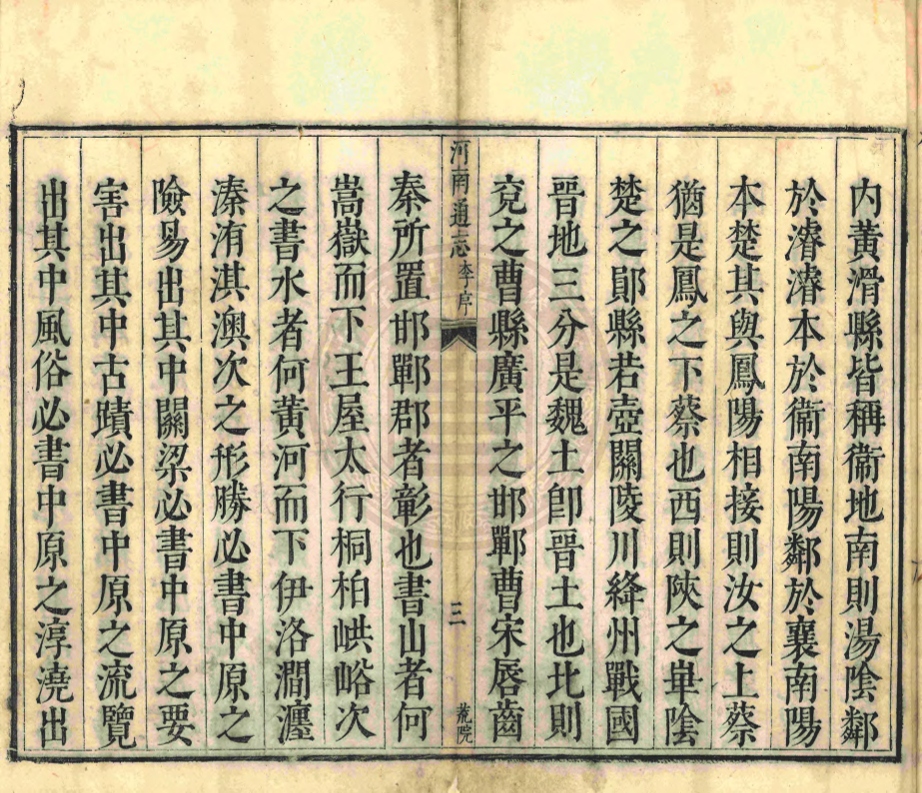 內黃滑縣皆稱衞地南則湯陰鄰
於濬濬本於衞南陽鄰於襄南陽
本楚其與鳳陽相接則汝之上蔡
猶是鳳之下蔡也西則陝之畢陰
楚之鄖縣若壺關陵川絳州戰國
晉地三分是魏土卽晉土也北則
兗之曹縣廣平之邯鄲曹宋唇齒
河南通志 李序 三 荒院
秦所置邯鄲郡者彰也書山者何
嵩嶽而下王屋太行桐柏峡峪次
之書水者何黃河而下伊洛澗瀍
溱洧淇澳次之形勝必書中原之
險易出其中關梁必書中原之要
害出其中古蹟必書中原之流覽
出其中風俗必書中原之淳澆出